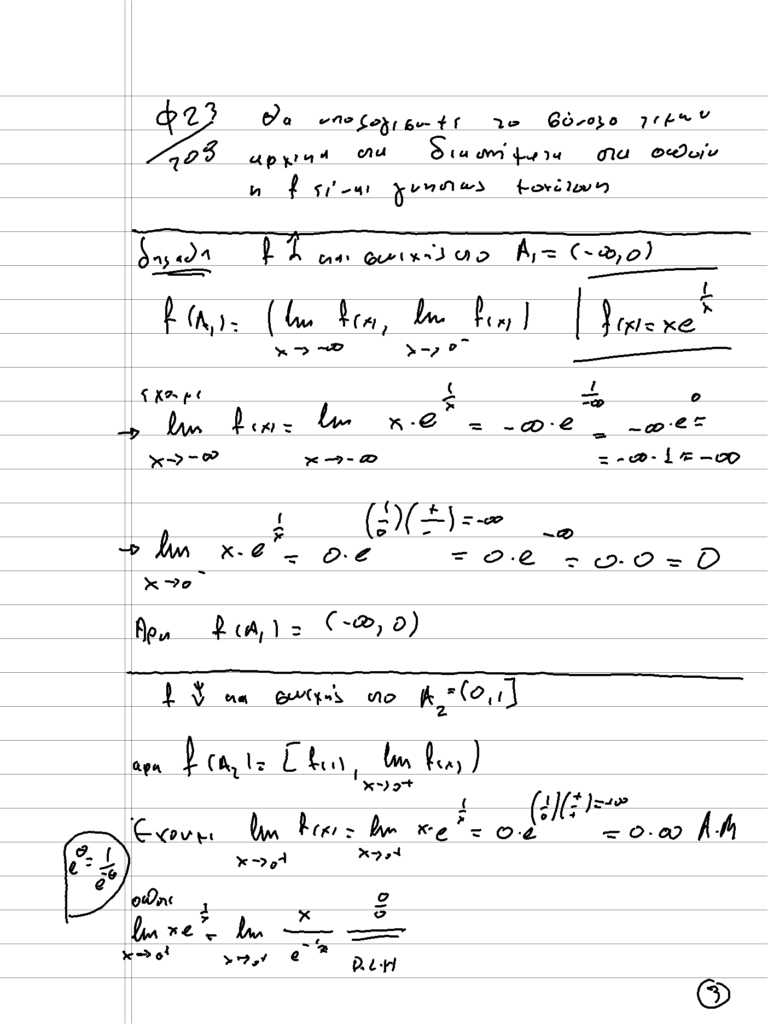 Φ23 Θα υπολογισουμε το σύνολο τιμων
/203 αρχικα στα διαστήματα στα οποία
η f είναι γνησιως μονότονη
δηλαδη f ↑ και συνεχής στο A₁ = (-∞, 0)
f(A₁) = (lim x→-∞ f(x), lim x→0⁻ f(x)) | f(x) = xe^{1/x}
εχουμε
→ lim x→-∞ f(x) = lim x→-∞ x·e^{1/x} = -∞·e^{1/-∞} = -∞·e^0 =
= -∞·1 = -∞
→ lim x→0⁻ x·e^{1/x} = 0·e^{(1/0)(+/-) = -∞} = 0·e^{-∞} = 0·0 = 0
Αρα f(A₁) = (-∞, 0)
f ↓ και συνεχής στο A₂ = (0, 1]
αρα f(A₂) = [f(1), lim x→0⁺ f(x))
Εχουμε lim x→0⁺ f(x) = lim x→0⁺ x·e^{1/x} = 0·e^{(1/0)(+/+) = +∞} = 0·∞ Α.Μ
e^θ = 1/e^{-θ}
οποτε
lim x→0⁺ xe^{1/x} = lim x→0⁺ x/e^{-1/x} 0/0 D.L.H
3